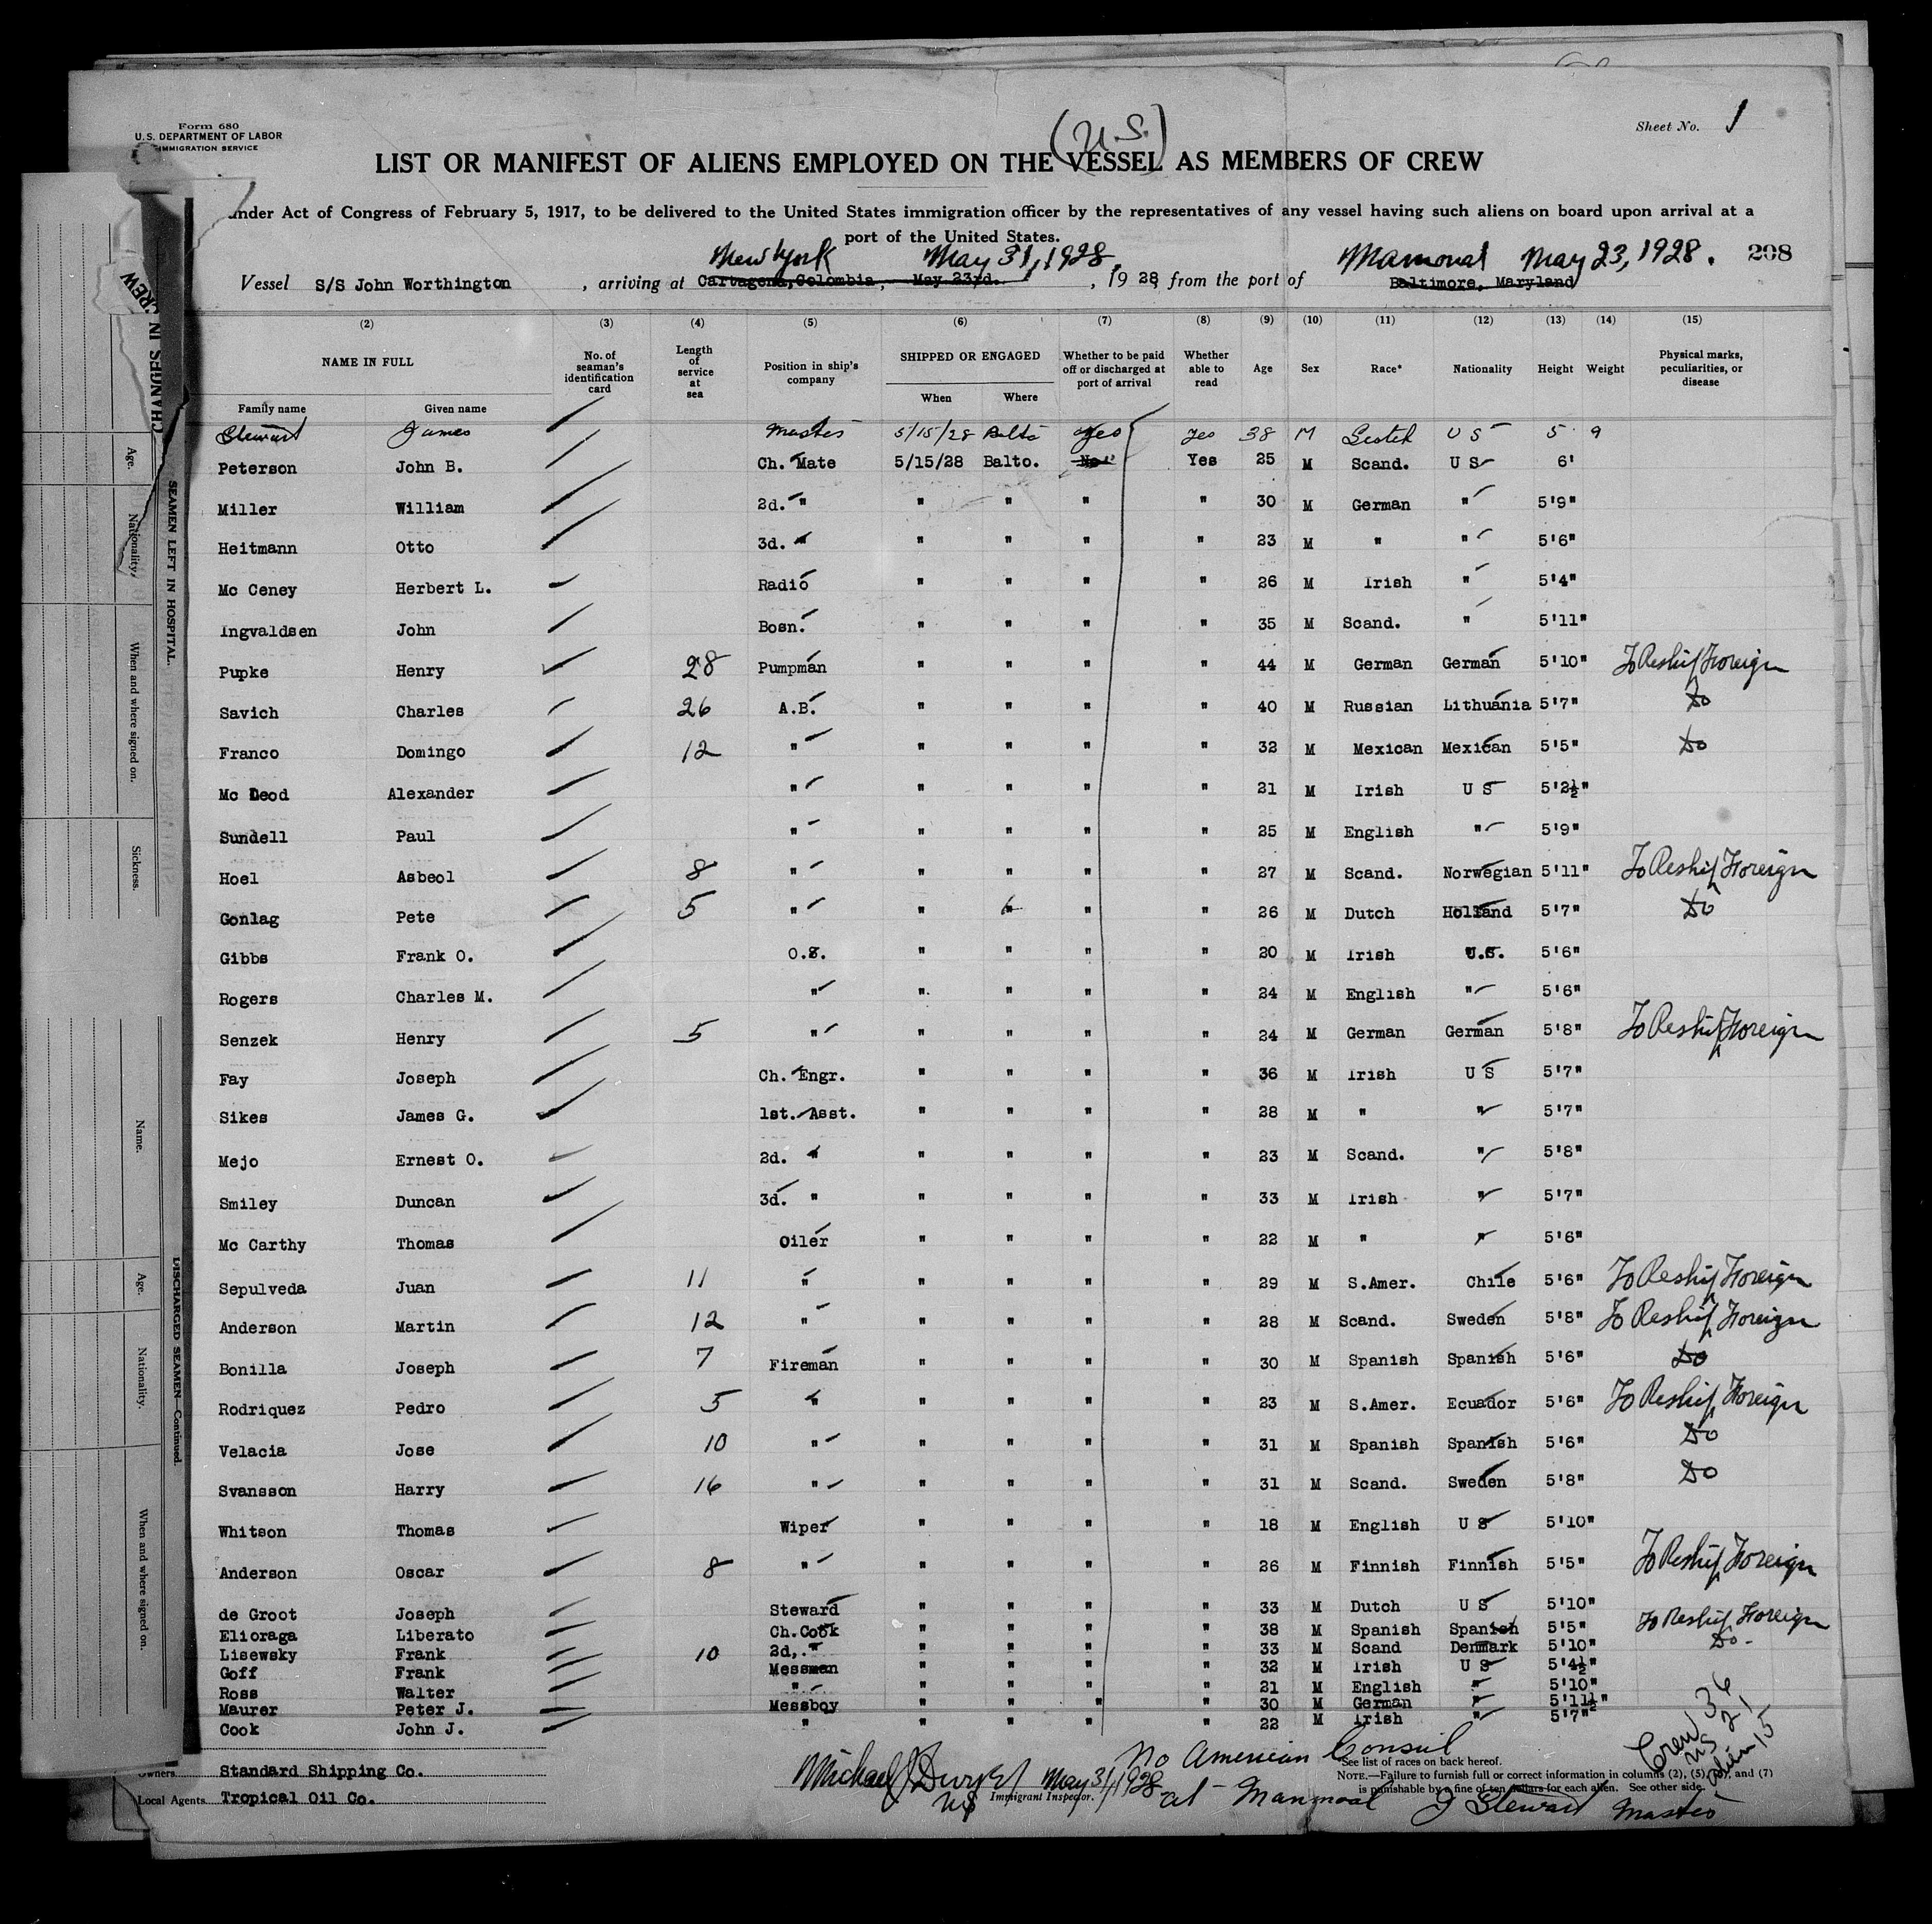 Form 680
U.S. DEPARTMENT OF LABOR
IMMIGRATION SERVICE
(U.S.)
Sheet No. 1
LIST OR MANIFEST OF ALIENS EMPLOYED ON THE VESSEL AS MEMBERS OF CREW
under Act of Congress of February 5, 1917, to be delivered to the United States immigration officer by the representatives of any vessel having such aliens on board upon arrival at a
port of the United States.
New York May 31, 1928. Mamonal May 23, 1928. 208
Vessel S/S John Worthington, arriving at Cartagena, Colombia, May 23rd., 1928, from the port of Baltimore, Maryland
(2) (3) (4) (5) (6) (7) (8) (9) (10) (11) (12) (13) (14) (15)
NAME IN FULL No. of seaman's identification card Length of service at sea Position in ship's company SHIPPED OR ENGAGED Whether to be paid off or discharged at port of arrival Whether able to read Age Sex Race* Nationality Height Weight Physical marks, peculiarities, or disease
Family name Given name When Where
Stewart James Master 5/15/28 Balto Yes Yes 38 M Scotch U S 5 9
Peterson John B. Ch. Mate 5/15/28 Balto. No Yes 25 M Scand. U S 6'
Miller William 2d. " " " " " 30 M German " 5'9"
Heitmann Otto 3d. " " " " " 23 M " " 5'6"
Mc Ceney Herbert L. Radio " " " " 26 M Irish " 5'4"
Ingvaldsen John Bosn. " " " " 35 M Scand. " 5'11"
Pupke Henry 28 Pumpman " " " " 44 M German German 5'10" To Reship Foreign
Savich Charles 26 A.B. " " " " 40 M Russian Lithuania 5'7" Do
Franco Domingo 12 " " " " " 32 M Mexican Mexican 5'5" Do
Mc Leod Alexander " " " " " 21 M Irish U S 5'2½"
Sundell Paul " " " " " 25 M English " 5'9"
Hoel Asbeol 8 " " " " " 27 M Scand. Norwegian 5'11" To Reship Foreign
Gonlag Pete 5 " " " " " 26 M Dutch Holland 5'7" Do
Gibbs Frank O. O.S. " " " " 20 M Irish U.S. 5'6"
Rogers Charles M. " " " " " 24 M English " 5'6"
Senzek Henry 5 " " " " " 24 M German German 5'8" To Reship Foreign
Fay Joseph Ch. Engr. " " " " 36 M Irish U S 5'7"
Sikes James G. 1st. Asst. " " " " 28 M " " 5'7"
Mejo Ernest O. 2d. " " " " " 23 M Scand. " 5'8"
Smiley Duncan 3d. " " " " " 33 M Irish " 5'7"
Mc Carthy Thomas Oiler " " " " 22 M " " 5'6"
Sepulveda Juan 11 " " " " " 29 M S.Amer. Chile 5'6" To Reship Foreign
Anderson Martin 12 " " " " " 28 M Scand. Sweden 5'8" To Reship Foreign
Bonilla Joseph 7 Fireman " " " " 30 M Spanish Spanish 5'6" Do
Rodriquez Pedro 5 " " " " " 23 M S.Amer. Ecuador 5'6" To Reship Foreign
Velacia Jose 10 " " " " " 31 M Spanish Spanish 5'6" Do
Svansson Harry 16 " " " " " 31 M Scand. Sweden 5'8" Do
Whitson Thomas Wiper " " " " 18 M English U S 5'10"
Anderson Oscar 8 " " " " " 26 M Finnish Finnish 5'5" To Reship Foreign
de Groot Joseph Steward " " " " 33 M Dutch U S 5'10"
Elioraga Liberato Ch.Cook " " " " 38 M Spanish Spanish 5'5" To Reship Foreign
Lisewsky Frank 10 2d,. " " " " " 33 M Scand Denmark 5'10" Do-
Goff Frank Messman " " " " 32 M Irish U S 5'4½"
Ross Walter " " " " " 21 M English " 5'10"
Maurer Peter J. Messboy " " " " 30 M German " 5'11½"
Cook John J. " " " " " 22 M Irish " 5'7"
Crew 36
US 21
Alien 15
Owners Standard Shipping Co.
Local Agents Tropical Oil Co.
Michael J Dwyer May 31/1928
US Immigrant Inspector.
No American Consul
at Manmoal J Stewart Master
*See list of races on back hereof.
NOTE.—Failure to furnish full or correct information in columns (2), (5), and (7)
is punishable by a fine of ten dollars for each alien. See other side.
CHANGES IN CREW
SEAMEN LEFT IN HOSPITAL.
Age.
Nationality.
When and where signed on.
Sickness.
DISCHARGED SEAMEN—Continued.
Name.
Age.
Nationality.
When and where signed on.